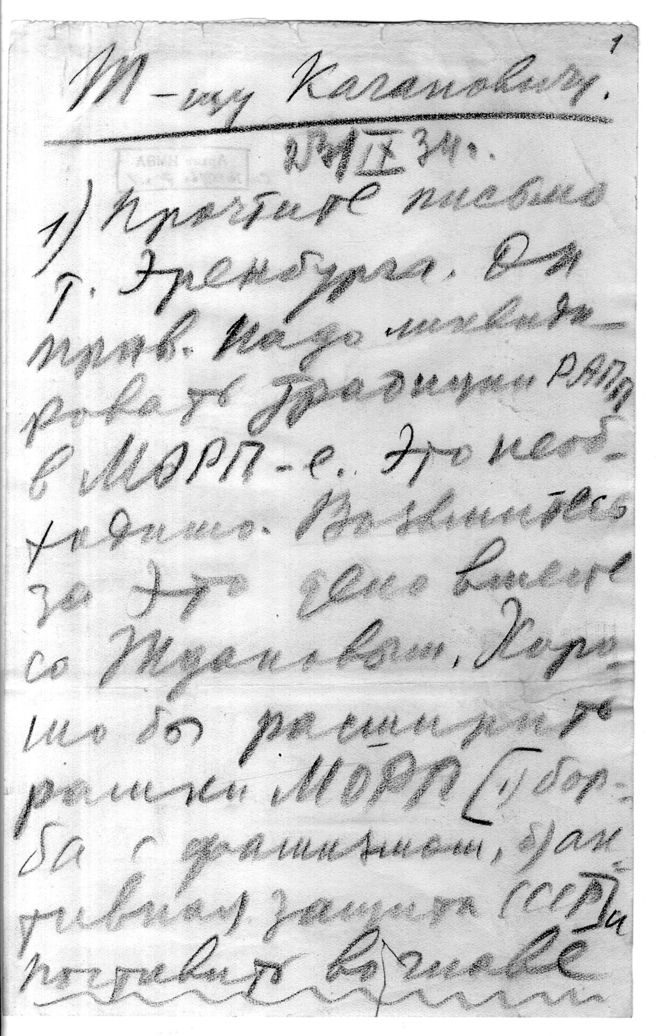 1
Т-щу Кагановичу.
23/IX 34.
1) Прочтите письмо
т. Эренбурга. Он
прав. Надо ликвиди-
ровать традиции РАПП
в МОРП-е. Это необ-
ходимо. Возьмитесь
за это дело вместе
со Ждановым. Хоро-
шо бы расширить
рамки МОРП [1) борь-
ба с фашизмом, 2) ак-
тивная защита СССР] и
поставить во главе